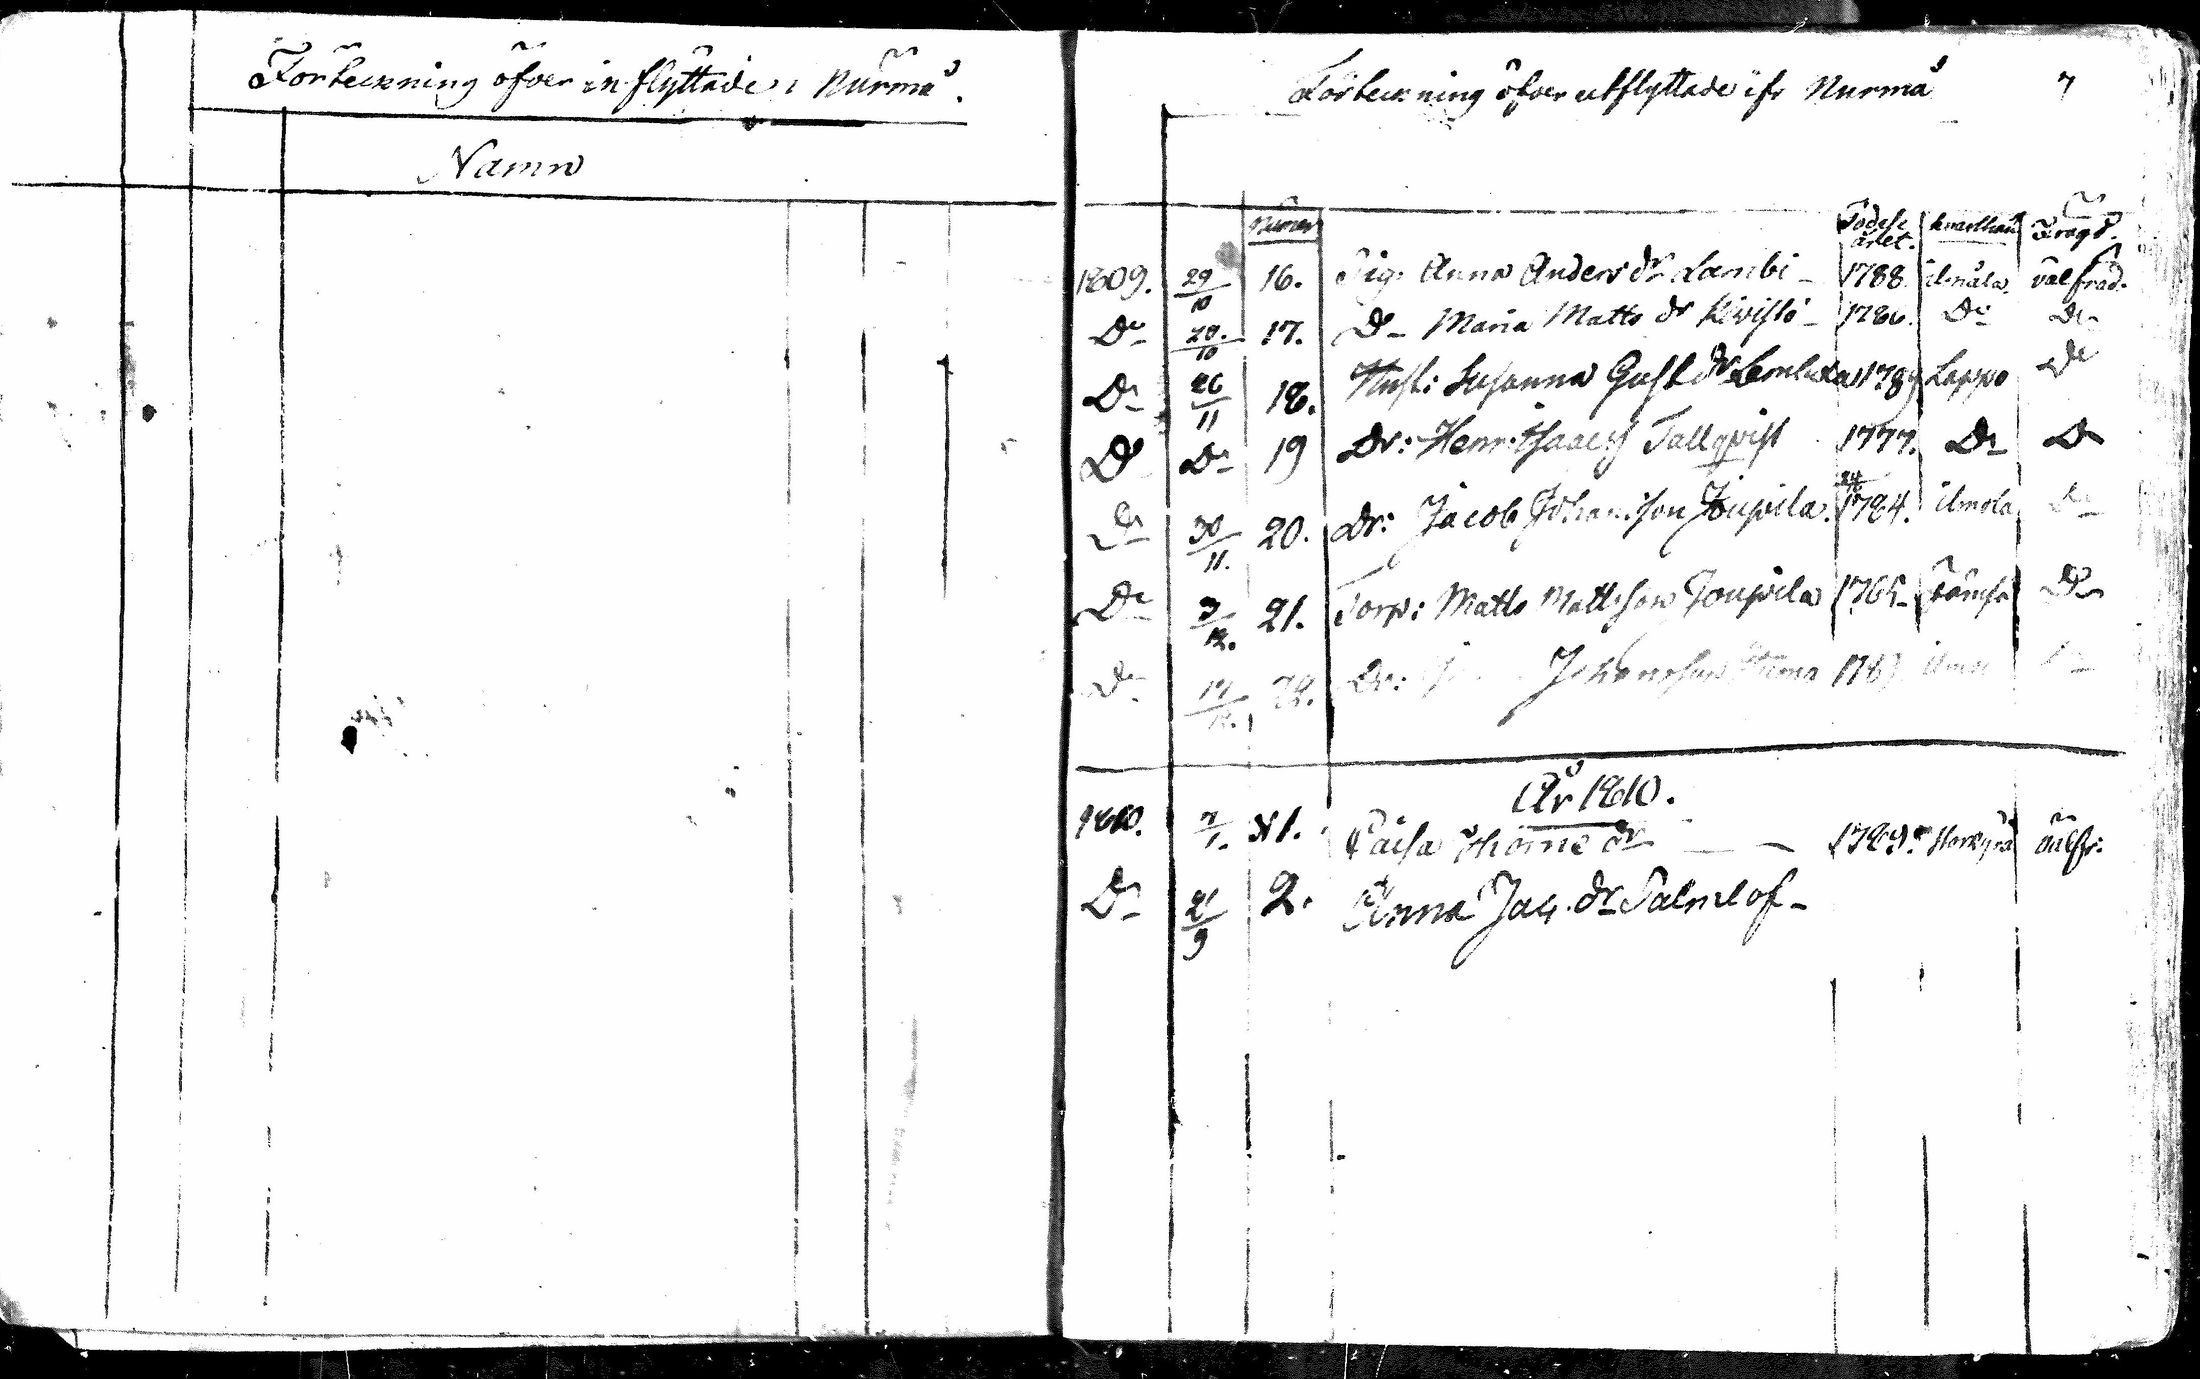 Förteckning öfver inflyttade i Nurmå.
Namn
Förteckning öfver utflyttade ifr Nurmå 7
Numer Födelse året. Frägd.
1809. 29/10 16. Pig. Anna Anders dr Lambi - 1788. ilmåla. välfräd.
Do 29./10 17. Do - Maria Matts dr Kivistö - 1786. Do Do
Do 26/11 18. Hust: Susanna Gust dr 1789 Lappo Do
Do Do 19 Dr: Henr: Isaacs Tallqvist 1777. Do Do
Do 30/11. 20. Dr: Jacob Johansson Joupila. 1784. ilmola Do
Do 3/12. 21. Torp: Matts Mattsson Joupila 1765 Do
Do 17/12. 22. Dr: Johansson Do
År 1810.
1810. 7/1. N 1. Caisa Thome dr - - välfr:
Do 21/9 2. Anna Jac. dr Palmlöf -